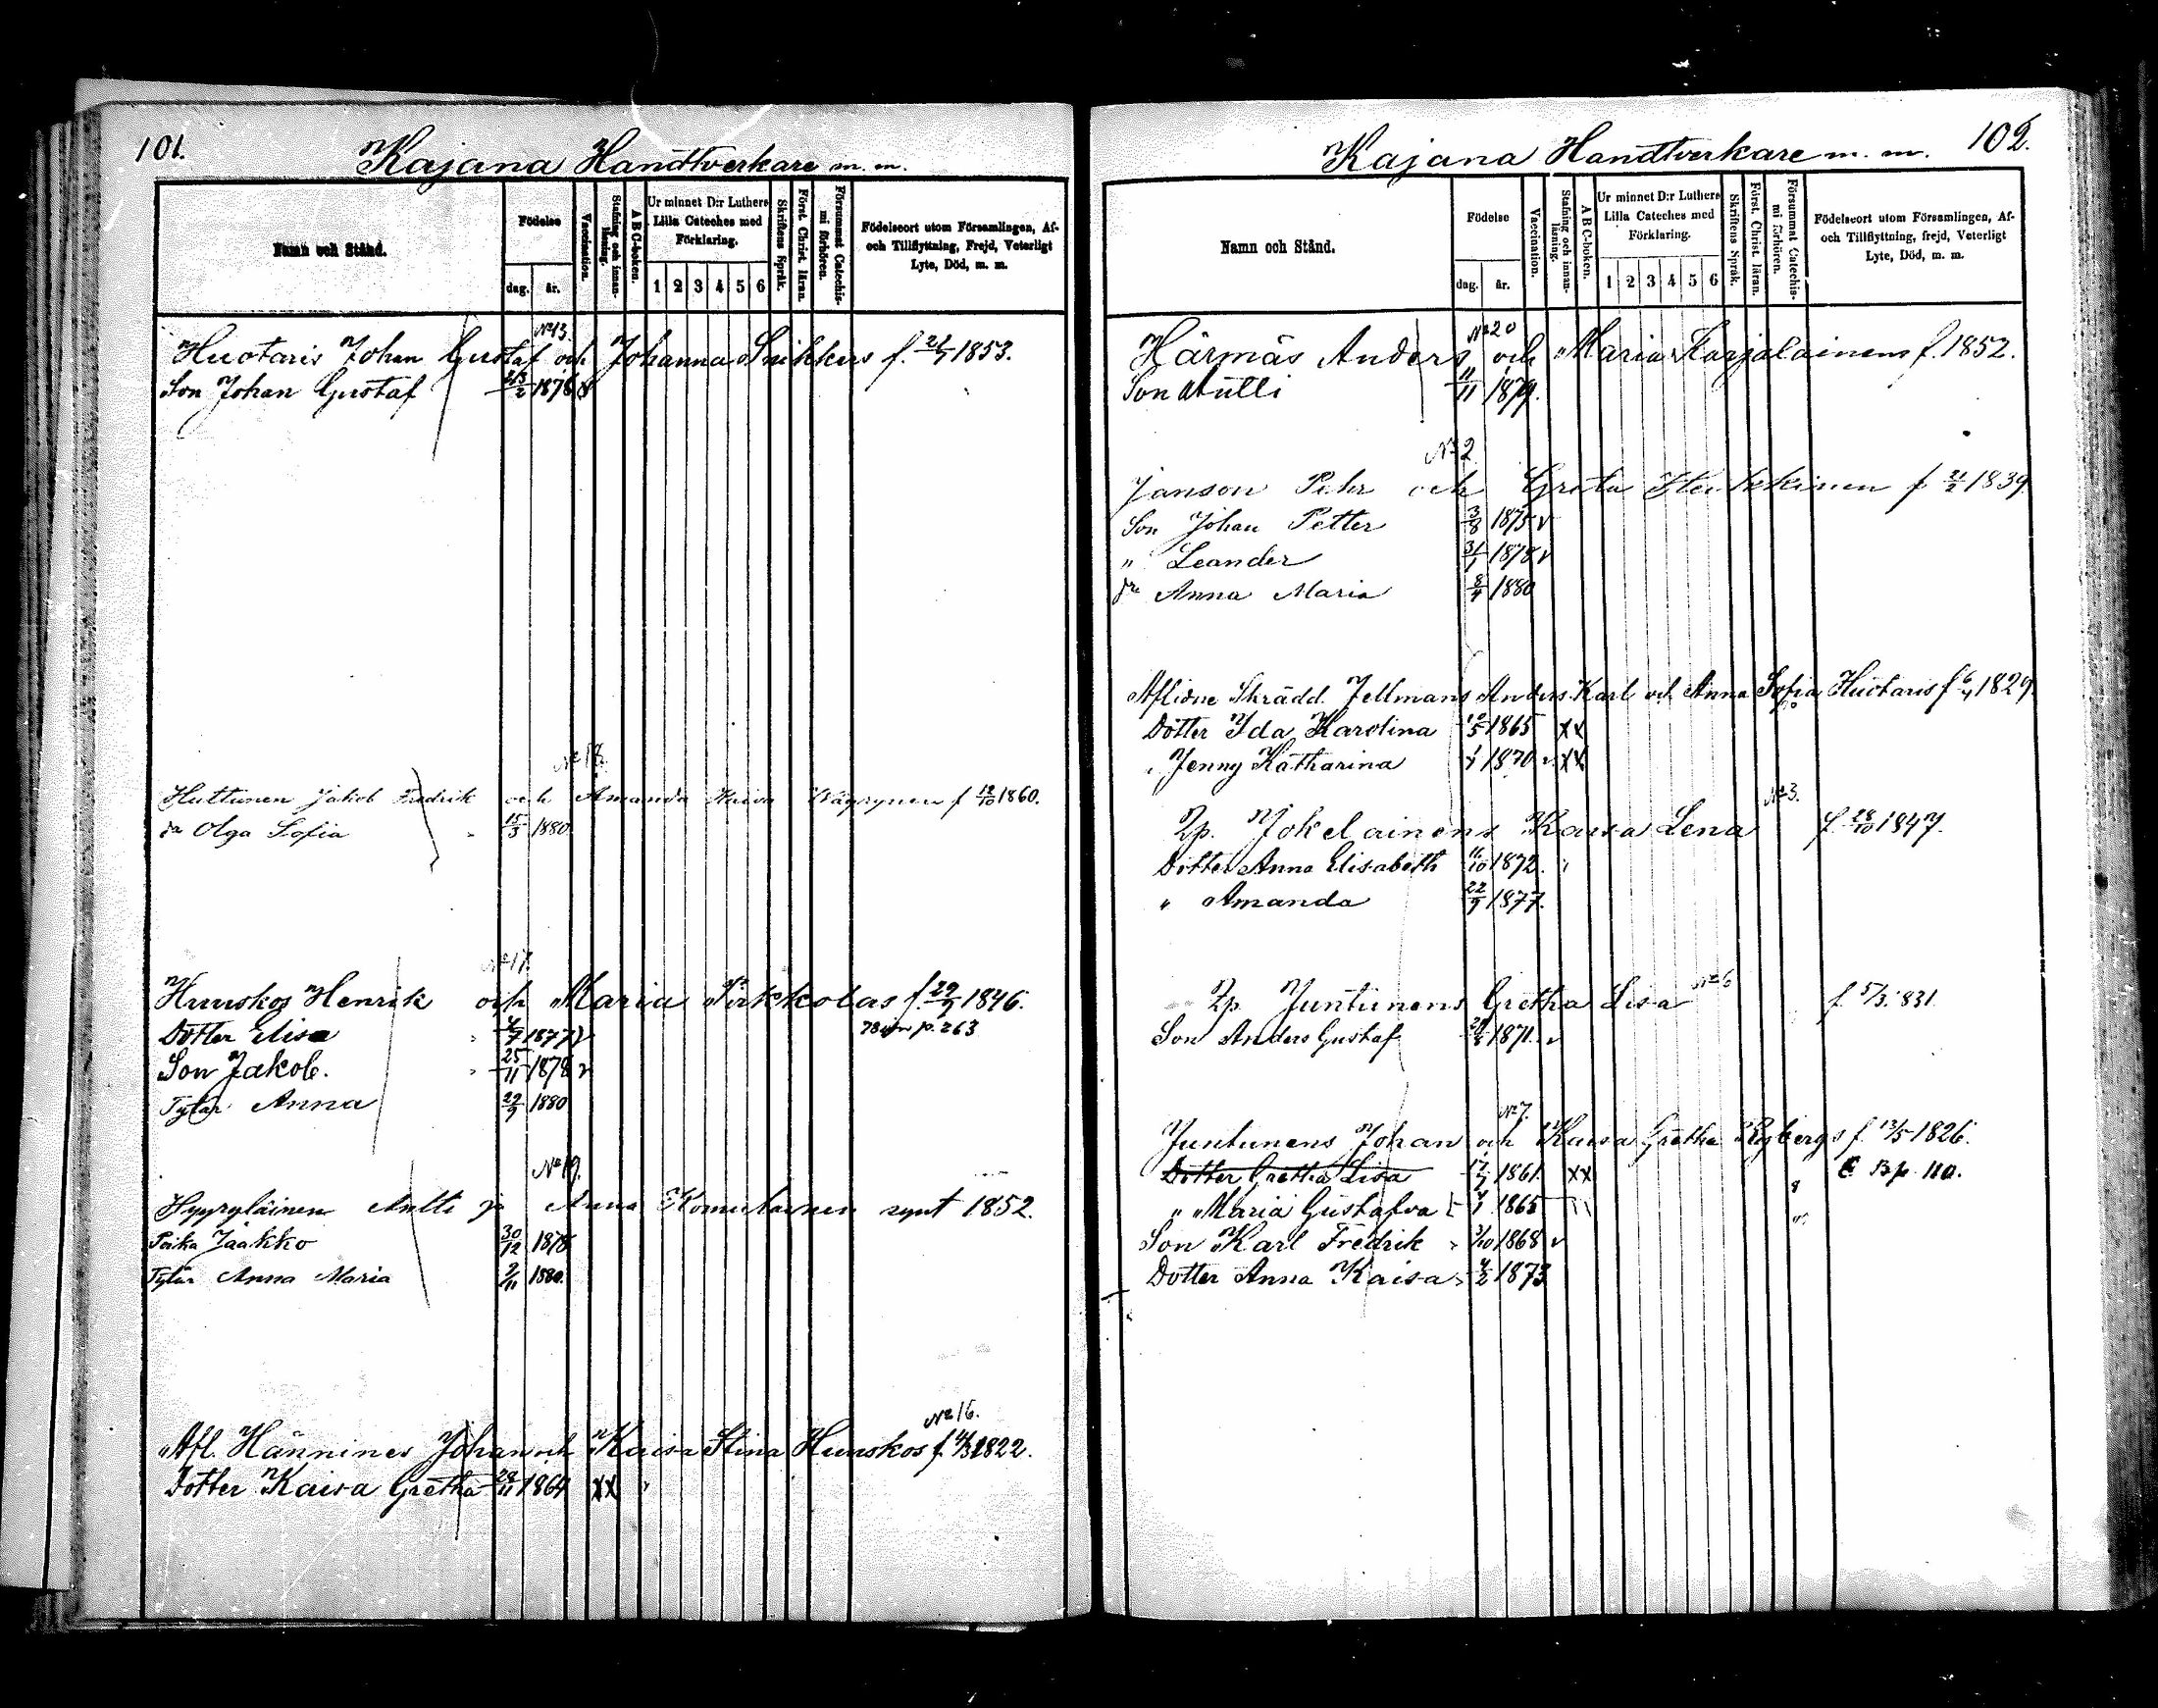 101.
Kajana Handtverkare m. m.
Namn och Stånd.
Födelse
dag.
år.
Vaccination.
Stafning och innan-läsning.
A B C-boken.
Ur minnet D:r Luthers Lilla Cateches med Förklaring.
1 2 3 4 5 6
Skriftens Språk.
Först. Christ. läran.
Försummat Catechis-mi förhören.
Födelseort utom Församlingen, Af- och Tillflyttning, Frejd, Veterligt Lyte, Död, m. m.
No 13.
Huotaris Johan Gustaf och Johanna Snikkers f. 21/7 1853.
Son Johan Gustaf 1878
Huttunen Jakob Fredrik och Amanda Kaisa Väyrynen f 12/10 1860.
dr Olga Sofia 15/3 1880
No 17.
Huuskos Henrik och Maria Pirkkolas f. 29/7 1846.
Dotter Elisa 1877
p. 263
Son Jakob. 25/11 1878
Tytär Anna 29/9 1880
No 19.
Hyyryläinen Antti ja Anna Komulainen synt 1852.
Poika Jaakko 30/12 1878
Tytär Anna Maria 2/11 1880.
No 16.
Afl. Hännines Johan och Kaisa Stina Huuskos f. 1822.
Dotter Kaisa Gretha 28/11 1864 XX
102.
Kajana Handtverkare m. m.
Namn och Stånd.
Födelse
dag.
år.
Vaccination.
Stafning och innan-läsning.
A B C-boken.
Ur minnet D:r Luthers Lilla Cateches med Förklaring.
1 2 3 4 5 6
Skriftens Språk.
Först. Christ. läran.
Försummat Catechis-mi förhören.
Födelseort utom Församlingen, Af- och Tillflyttning, frejd, Veterligt Lyte, Död, m. m.
No 20
Härmäs Anders och Maria Karjalainens f. 1852.
Son Antti 11/11 1879.
No 2
Janson Pehr och Greta Heikkinen f 1839.
Son Johan Petter 3/8 1875
" Leander 31/1 1878
dr Anna Maria 8/4 1880
Aflidne Skrädd. Jellmans Anders Karl och Anna Sofia Huotaris f 6/4 1829.
Dotter Ida Karolina 1865 XX
" Jenny Katharina 1870 XX
No 3.
Jp. Jokelainens Kaisa Lena f. 28/10 1847.
Dotter Anna Elisabeth 16/10 1872.
" Amanda 22/9 1877.
No 6
Jp. Juntunens Gretha Lisa f. 5/3 1831.
Son Anders Gustaf 1871.
No 7.
Juntunens Johan och Kaisa Gretha Rybergs f. 13/5 1826.
Dotter Gretha Lisa 17/7 1861. XX B p. 110.
" Maria Gustafva 1865
Son Karl Fredrik 3/10 1868
Dotter Anna Kaisa 4/2 1873